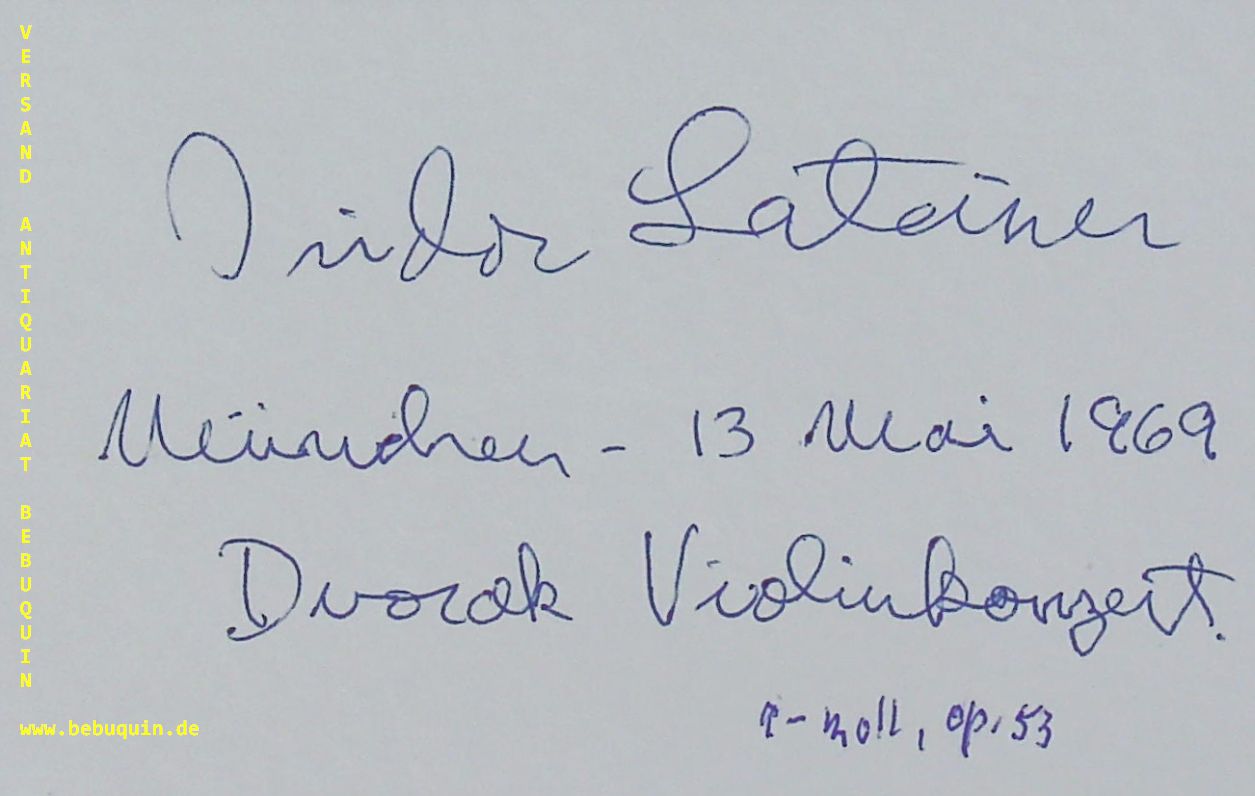 VERSAND ANTIQUARIAT BEBUQUIN
Isidor Lateiner
München - 13 Mai 1969
Dvorak Violinkonzert.
a-moll, op. 53
www.bebuquin.de